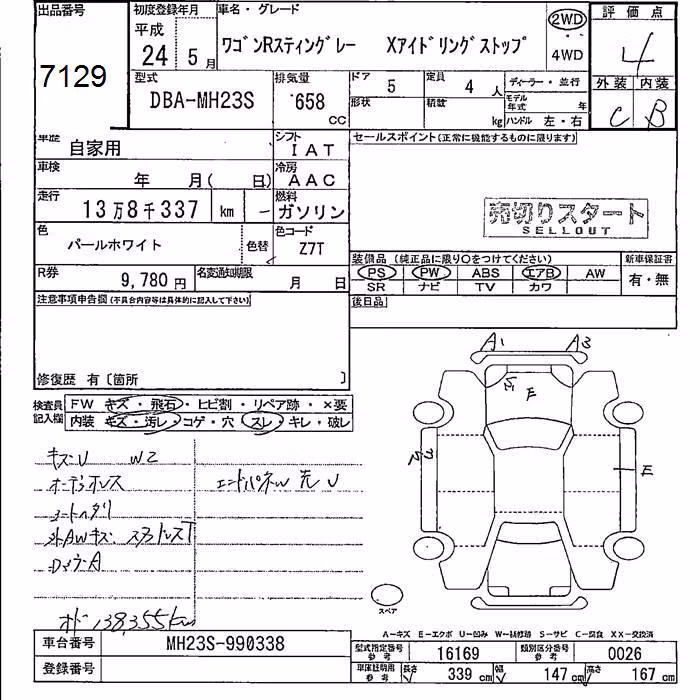 出品番号
7129
初度登録年月
平成
24年 5月
車名・グレード
ワゴンRスティングレー Xアイドリングストップ
2WD
・
4WD
評価点
4
外装 内装
C B
型式
DBA-MH23S
排気量
658
CC
ドア 5
定員 4人
ディーラー・並行
形状
積載 kg
モデル年式 年
ハンドル 左・右
車歴 自家用
シフト IAT
セールスポイント(正常に機能するものに限ります)
車検 年 月( 日)
冷房 AAC
走行 13万8千337 km −
燃料 ガソリン
売切りスタート
SELLOUT
色 パールホワイト
色替
色コード Z7T
装備品 (純正品に限り○をつけてください)
新車保証書
PS PW ABS エアB AW
有・無
SR ナビ TV カワ
R券 9,780円
名変通知期限 月 日
後日品
注意事項申告欄(不具合内容等は具体的に記入して下さい)
修復歴 有〔箇所 〕
検査員記入欄
FW キズ・飛石・ヒビ割・リペア跡・×要
内装 キズ・汚レ・コゲ・穴 スレ・キレ・破レ
キズ・U W2
オーデオレス
エンドパネW 先U
シートヘタリ
外AWキズ
ロメラーA
オド138,355km
A1 A3
E
E
スペア
A−キズ E−エクボ U−凹み W−補修跡 S−サビ C−腐食 XX−交換済
車台番号 MH23S-990338
登録番号
型式指定番号 参考 16169
類別区分番号 参考 0026
車庫証明用 参考 長さ 339cm 幅 147cm 高さ 167cm